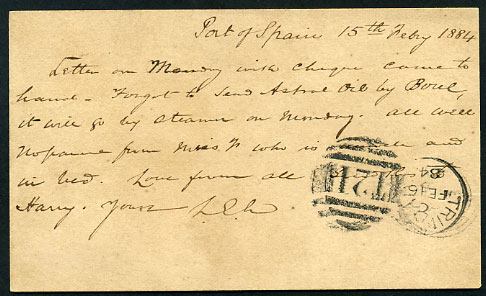 Port of Spain 15th Febry 1884
Letter on Monday with cheque came to
hand - Forgot to send Astral Oil by
it will go by steamer on Monday. All well
from Miss who is and
in bed Love from all
Harry. Yours
TRINIDAD
FE 16
84